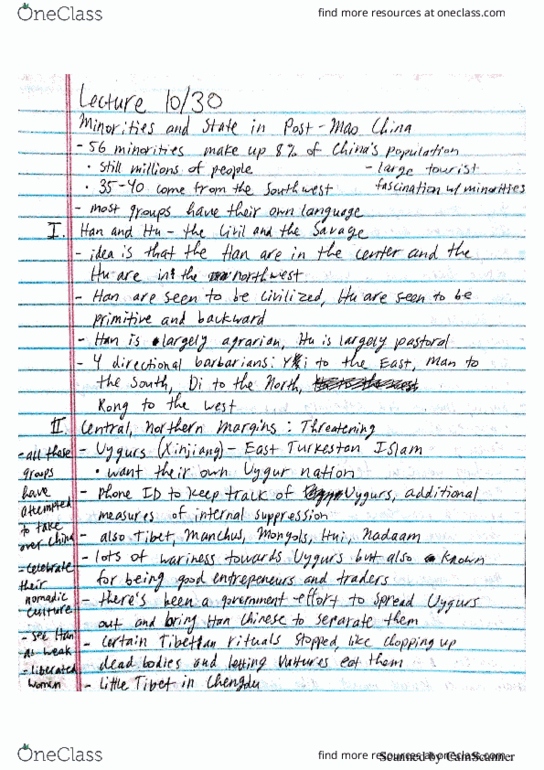 OneClass
find more resources at oneclass.com
Lecture 10/30
Minorities and State in Post-Mao China
- 56 minorities make up 8% of China's population
• Still millions of people
- large tourist
fascination w/ minorities
• 35-40 come from the Southwest
- most groups have their own language
I. Han and Hu - the Civil and the Savage
- idea is that the Han are in the center and the
Hu are in the northwest
- Han are seen to be civilized, Hu are seen to be
primitive and backward
- Han is largely agrarian, Hu is largely pastoral
- 4 directional barbarians: Yi to the East, Man to
the South, Di to the North,
Rong to the west
II. Central, northern margins: Threatening
- Uygurs (Xinjiang) - East Turkestan Islam
• want their own Uygur nation
- phone ID to keep track of Uygurs, additional
measures of internal suppression
- also Tibet, Manchus, Mongols, Hui, Nadaam
- lots of wariness towards Uygurs but also known
for being good entrepeneurs and traders
- there's been a government effort to spread Uygurs
out and bring Han Chinese to separate them
- certain Tibetan rituals stopped, like chopping up
dead bodies and letting vultures eat them
- little Tibet in Chengdu
- all these
groups
have
attempted
to take
over China
- celebrate
their
nomadic
culture
- see Han
as weak
- liberated
women
OneClass
find more resources at oneclass.com
Scanned by CamScanner